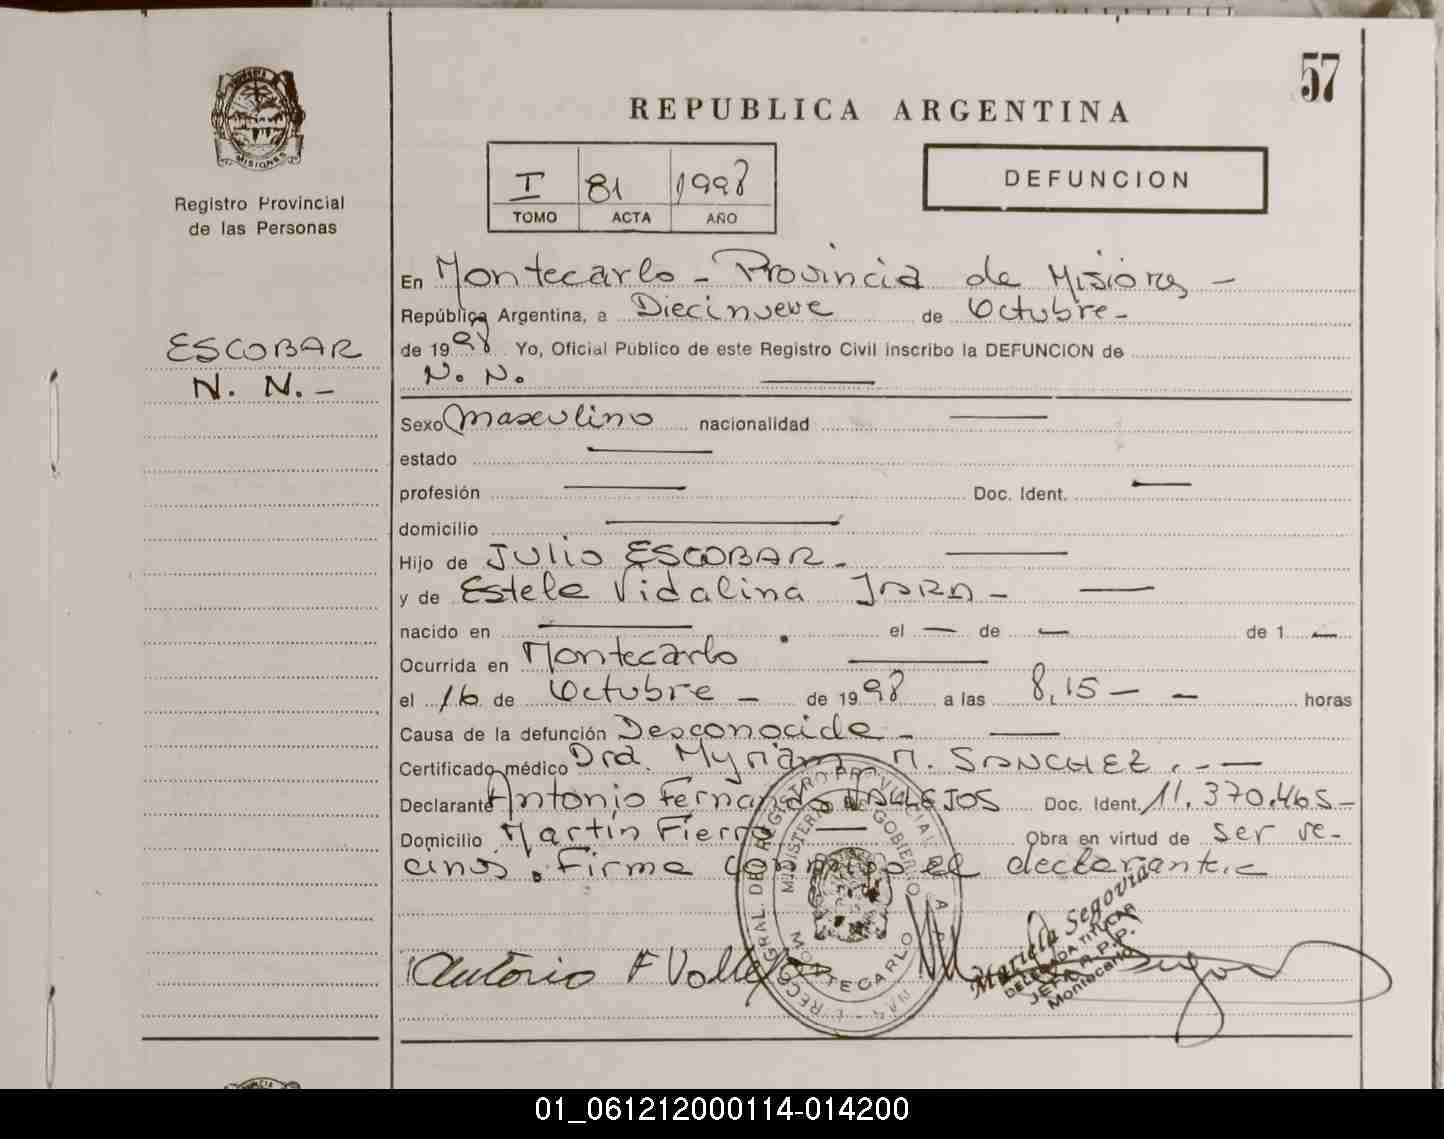 57
REPUBLICA ARGENTINA
I 81 1998
TOMO ACTA AÑO
DEFUNCION
MISIONES
Registro Provincial
de las Personas
ESCOBAR
N. N.-
En Montecarlo - Provincia de Misiones -
República Argentina, a Diecinueve de Octubre -
de 1998 Yo, Oficial Público de este Registro Civil inscribo la DEFUNCION de
N. N.
Sexo Masculino nacionalidad
estado
profesión Doc. Ident.
domicilio
Hijo de JULIO ESCOBAR.
y de Estela Vidalina JARA -
nacido en el — de — de 1 —
Ocurrida en Montecarlo
el 16 de Octubre - de 1998 a las 8,15 — — horas
Causa de la defunción Desconocida -
Certificado médico Dra. Myriam M. SANCHEZ . - —
Declarante Antonio Fernando VALLEJOS Doc. Ident. 11.370.465 -
Domicilio Martín Fierro — Obra en virtud de ser ve-
cinos. Firma conmigo el declarante.-
Antonio F Vallejos
REGISTRO PROVINCIAL
MINISTERIO DE GOBIERNO
MONTECARLO
Mariela Segovia
DELEGADA TITULAR
JEFA R.P.P.
Montecarlo
01_061212000114-014200